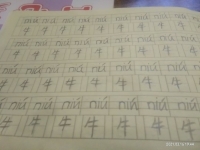 niú niú niú niú niú niú niú niú
牛 牛 牛 牛 牛 牛 牛 牛
niú niú niú niú niú niú niú niú
牛 牛 牛 牛 牛 牛 牛 牛
niú niú niú niú niú niú niú
牛 牛 牛 牛 牛 牛 牛
niú niú niú niú niú niú
牛 牛 牛 牛 牛 牛